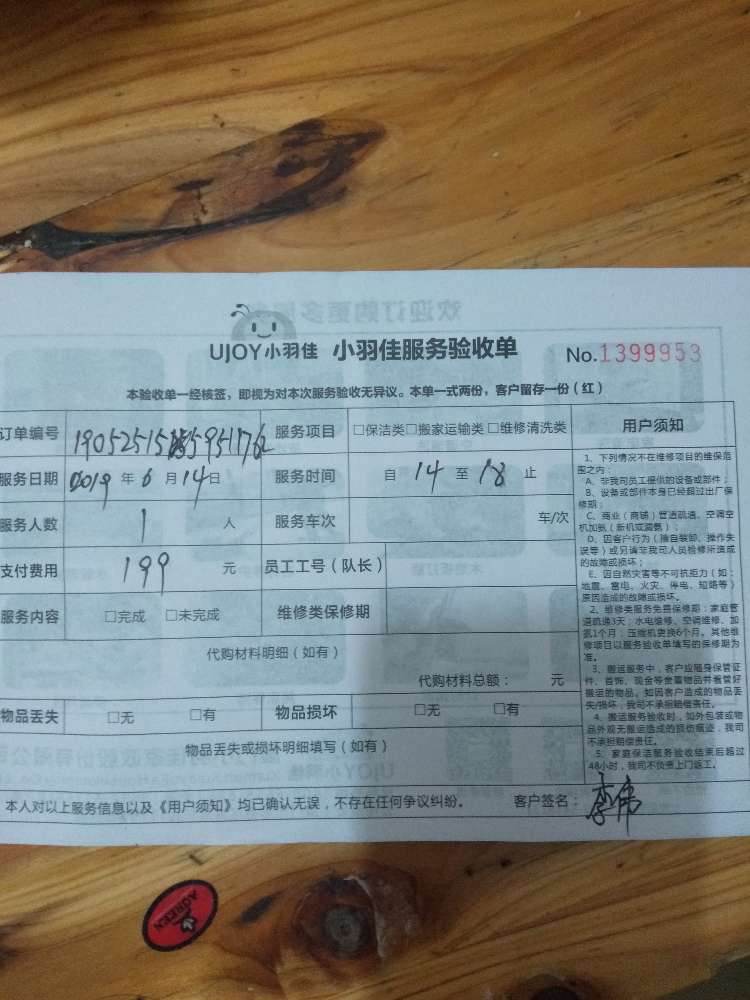 UJOY小羽佳 小羽佳服务验收单 No.1399953
本验收单一经核签,即视为对本次服务验收无异议。本单一式两份,客户留存一份(红)
订单编号 服务项目 □保洁类□搬家运输类□维修清洗类 用户须知
服务日期 2019年6月14日 服务时间 自 14 至 18 止
服务人数 1 人 服务车次 车/次
支付费用 199 元 员工工号(队长)
服务内容 □完成 □未完成 维修类保修期
代购材料明细(如有)
代购材料总额: 元
物品丢失 □无 □有 物品损坏 □无 □有
物品丢失或损坏明细填写(如有)
1、下列情况不在维修项目的维保范
围之内:
A、非我司员工提供的设备或部件;
B、设备或部件本身已经超过出厂保
修期;
C、商业(商铺)管道疏通、空调空
机加氨(新机或漏氨);
D、因客户行为(擅自装卸、操作失
误等)或另请非我司人员检修所造成
的故障或损坏;
E、因自然灾害等不可抗拒力(如:
地震、雷电、火灾、停电、短路等)
原因造成的故障或损坏。
2、维修类服务免费保修期:家庭管
道疏通3天;水电维修、空调维修、加
氨1个月;压缩机更换6个月。其他维
修项目以服务验收单填写的保修期为
准。
3、搬运服务中,客户应随身保管证
件、首饰、现金等贵重物品并看管好
搬运的物品。如因客户造成的物品丢
失/损坏,我司不承担赔偿责任。
4、搬运服务验收时,如外包装或物
品外观无搬运造成的损伤痕迹,我司
不承担赔偿责任。
5、家庭保洁服务验收结束后超过
48小时,我司不负责上门返工。
本人对以上服务信息以及《用户须知》均已确认无误,不存在任何争议纠纷。 客户签名:李伟
AGREEN